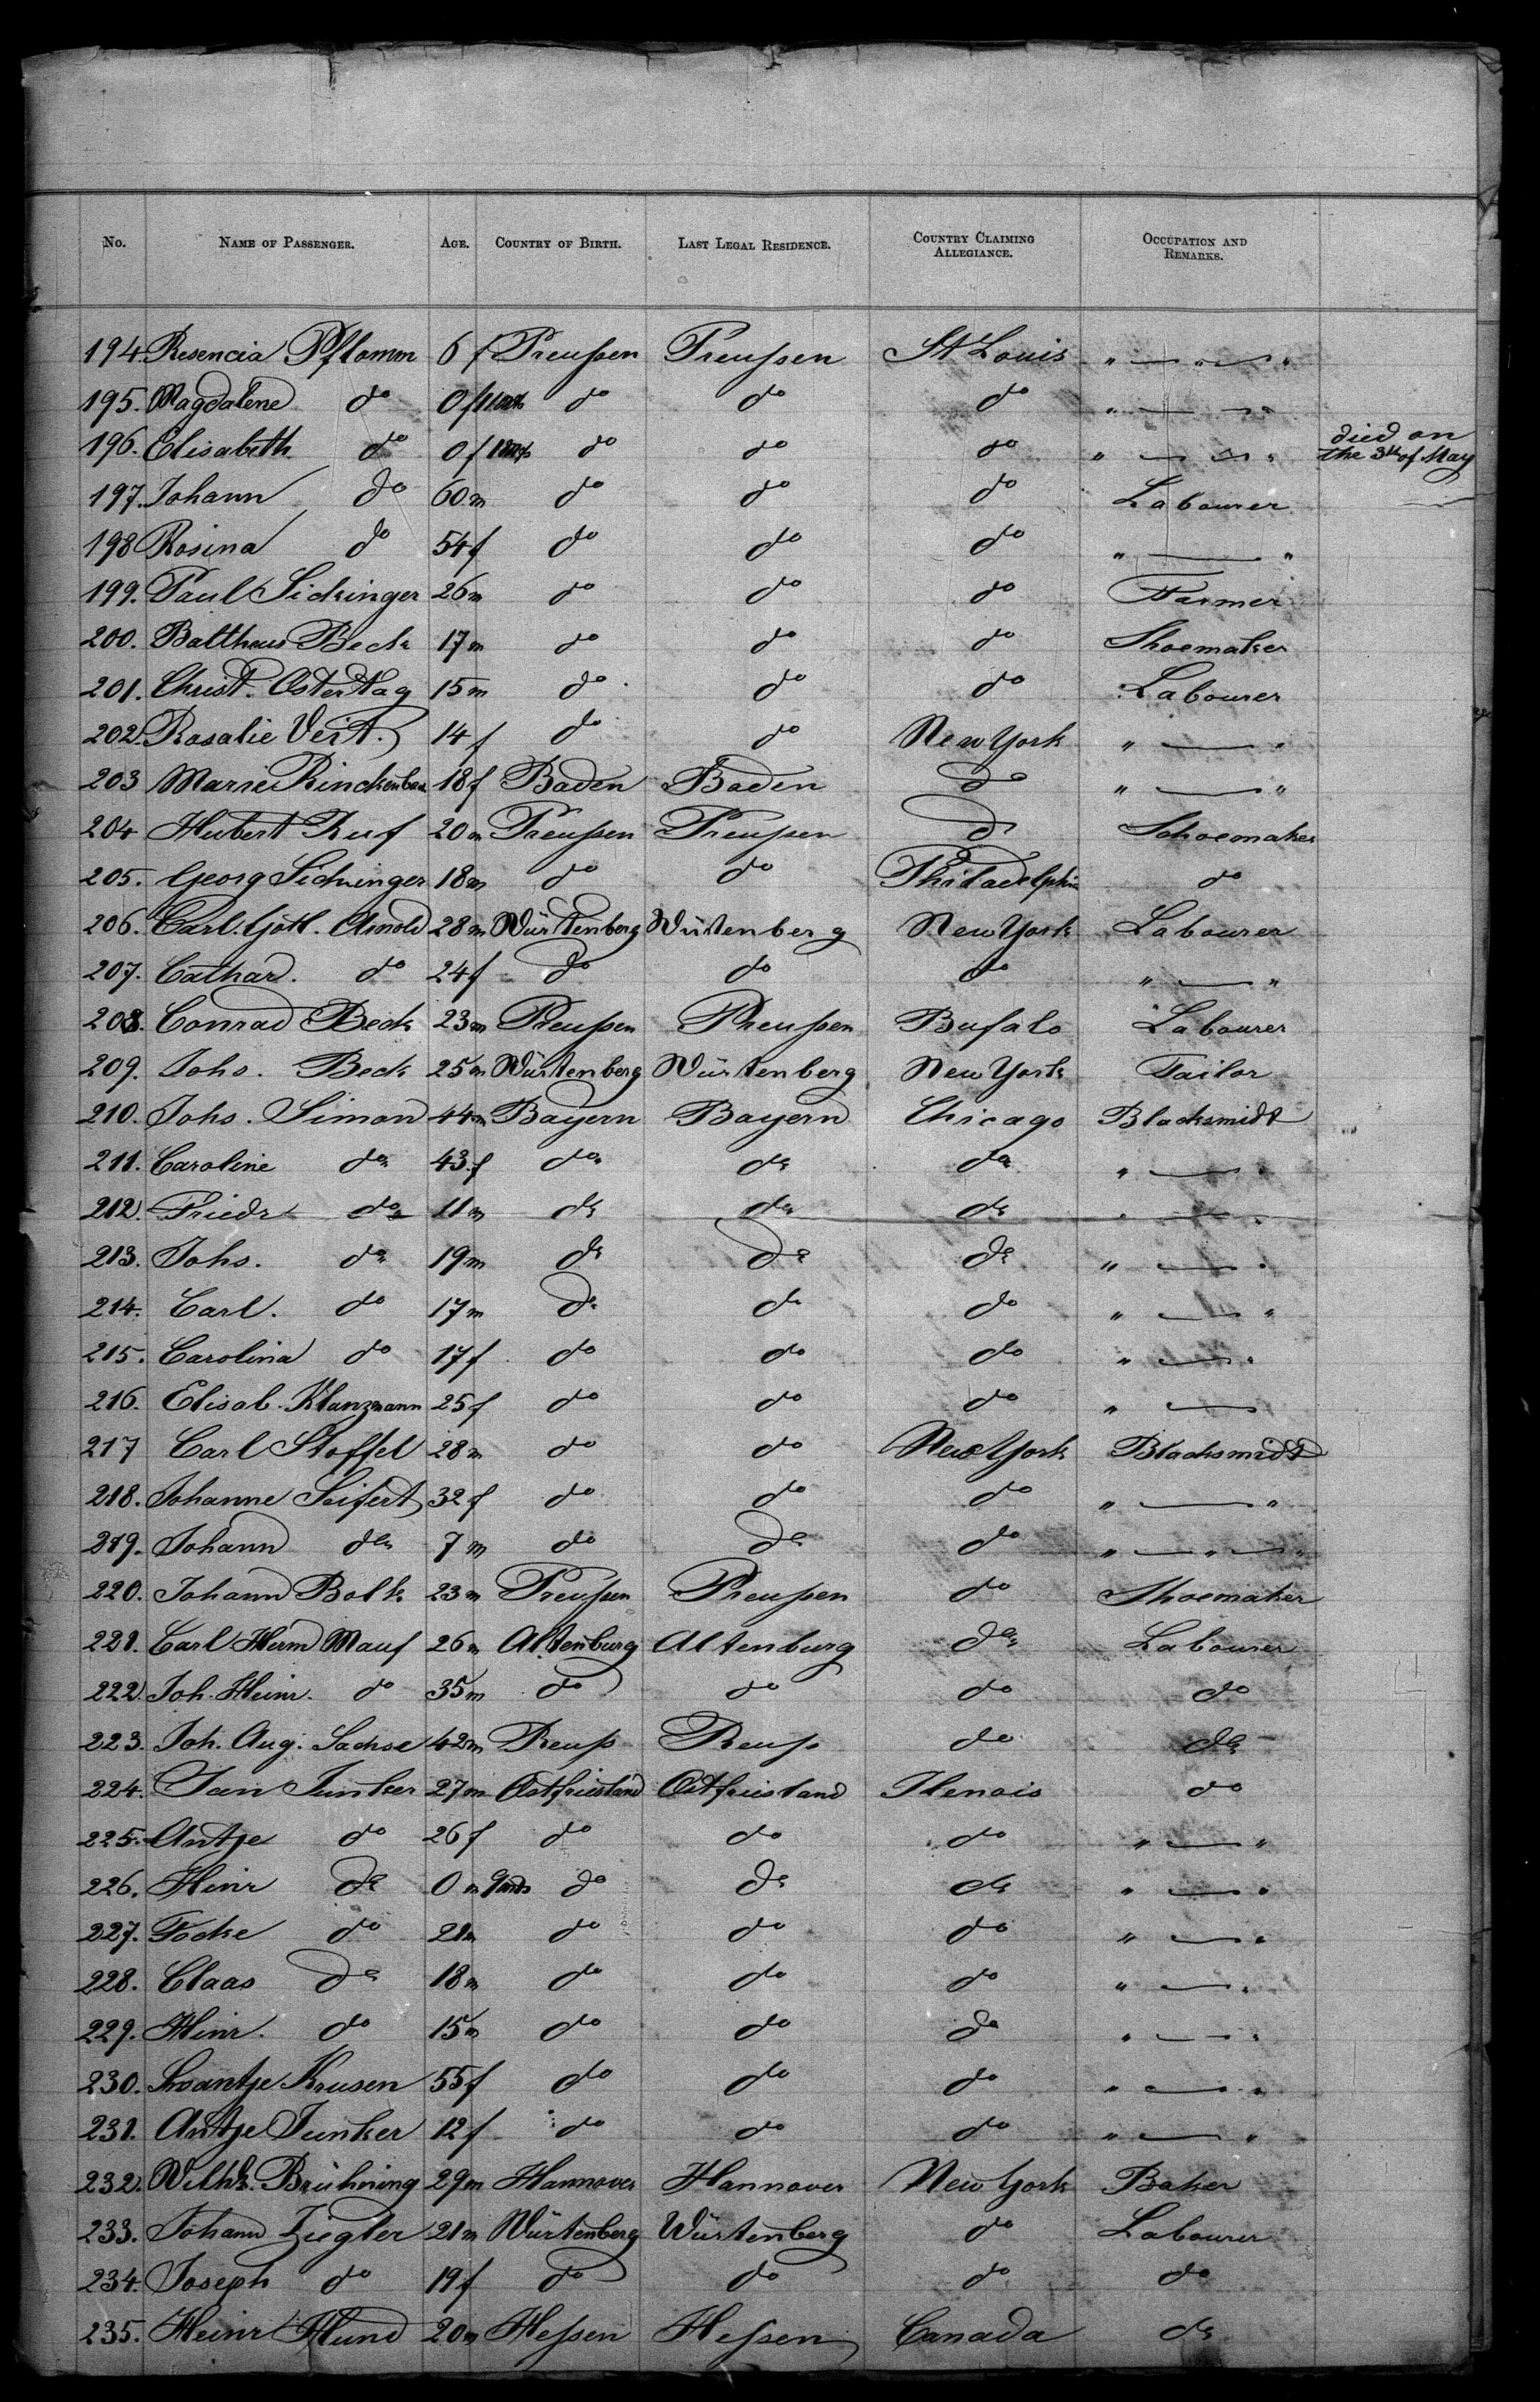 No. NAME OF PASSENGER. AGE. COUNTRY OF BIRTH. LAST LEGAL RESIDENCE. COUNTRY CLAIMING ALLEGIANCE. OCCUPATION AND REMARKS.
194. Resencia Pflomm 6 f Preußen Preußen St Louis " — " — "
195. Magdalene do 0 f do do do " — "
196. Elisabeth do 0 f do do do " — " died on the 3th of May
197. Johann do 60 m do do do Labourer
198 Rosina do 54 f do do do " — "
199. Paul Sickinger 26 m do do do Farmer
200. Balthaus Beck 17 m do do do Shoemaker
201. Christ. Ostertag 15 m do do do Labourer
202. Rosalie Veit. 14 f do do New York " — "
203 Marie 18 f Baden Baden do " — "
204 Hubert Ruf 20 m Preußen Preußen do Schoemaker
205. Georg Sickinger 18 m do do Philadelphia do
206. Carl. Gotl. Arnold 28 m Würtenberg Würtenberg New York Labourer
207. Cathar. do 24 f do do do " — "
208. Conrad Beck 23 m Preußen Preußen Bufalo Labourer
209. Johs. Beck 25 m Würtenberg Würtenberg New York Tailor
210. Johs. Simon 44 m Bayern Bayern Chicago Blacksmidt
211. Caroline do 43 f do do do " — "
212. Friedr do 11 m do do do " — "
213. Johs. do 19 m do do do " — "
214. Carl. do 17 m do do do " — "
215. Carolina do 17 f do do do " — "
216. Elisab. Klanzmann 25 f do do do " —
217 Carl Stoffel 28 m do do New York Blacksmidt
218. Johanne Seifert 32 f do do do " — "
219. Johann do 7 m do do do " — " — "
220. Johann Bolk 23 m Preußen Preußen do Shoemaker
221. Carl Herm Mauf 26 m Altenburg Altenburg do Labourer
222. Joh. Heinr. do 35 m do do do do
223. Joh. Aug. Sachse 42 m Reuß Reuß do do
224. Jan Junker 27 m Ostfriesland Ostfriesland Ilenois do
225. Antje do 26 f do do do " — "
226. Hinr do 0 m 9 mts do do do " — "
227. Focke do 21 m do do do " — "
228. Claas do 18 m do do do " — "
229. Hinr. do 15 m do do do " — "
230. Swantje Krusen 55 f do do do " — "
231. Antje Junker 12 f do do do " — "
232. Wilh. Brühning 29 m Hannover Hannover New York Baker
233. Johann Ziegler 21 m Würtenberg Würtenberg do Labourer
234. Joseph do 19 f do do do do
235. Heinr Hund 20 m Heßen Heßen Canada do